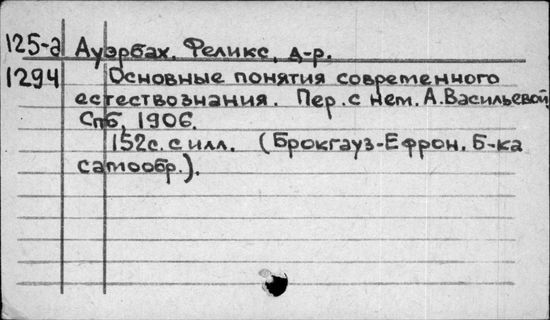 125-д Ауэрбах. Феликс, д-р.
1294 Основные понятия современного
естествознания. Пер. с нем. А. Васильевой
Спб, 1906.
152с. с илл. (Брокгауз-Ефрон. Б-ка
самообр.).